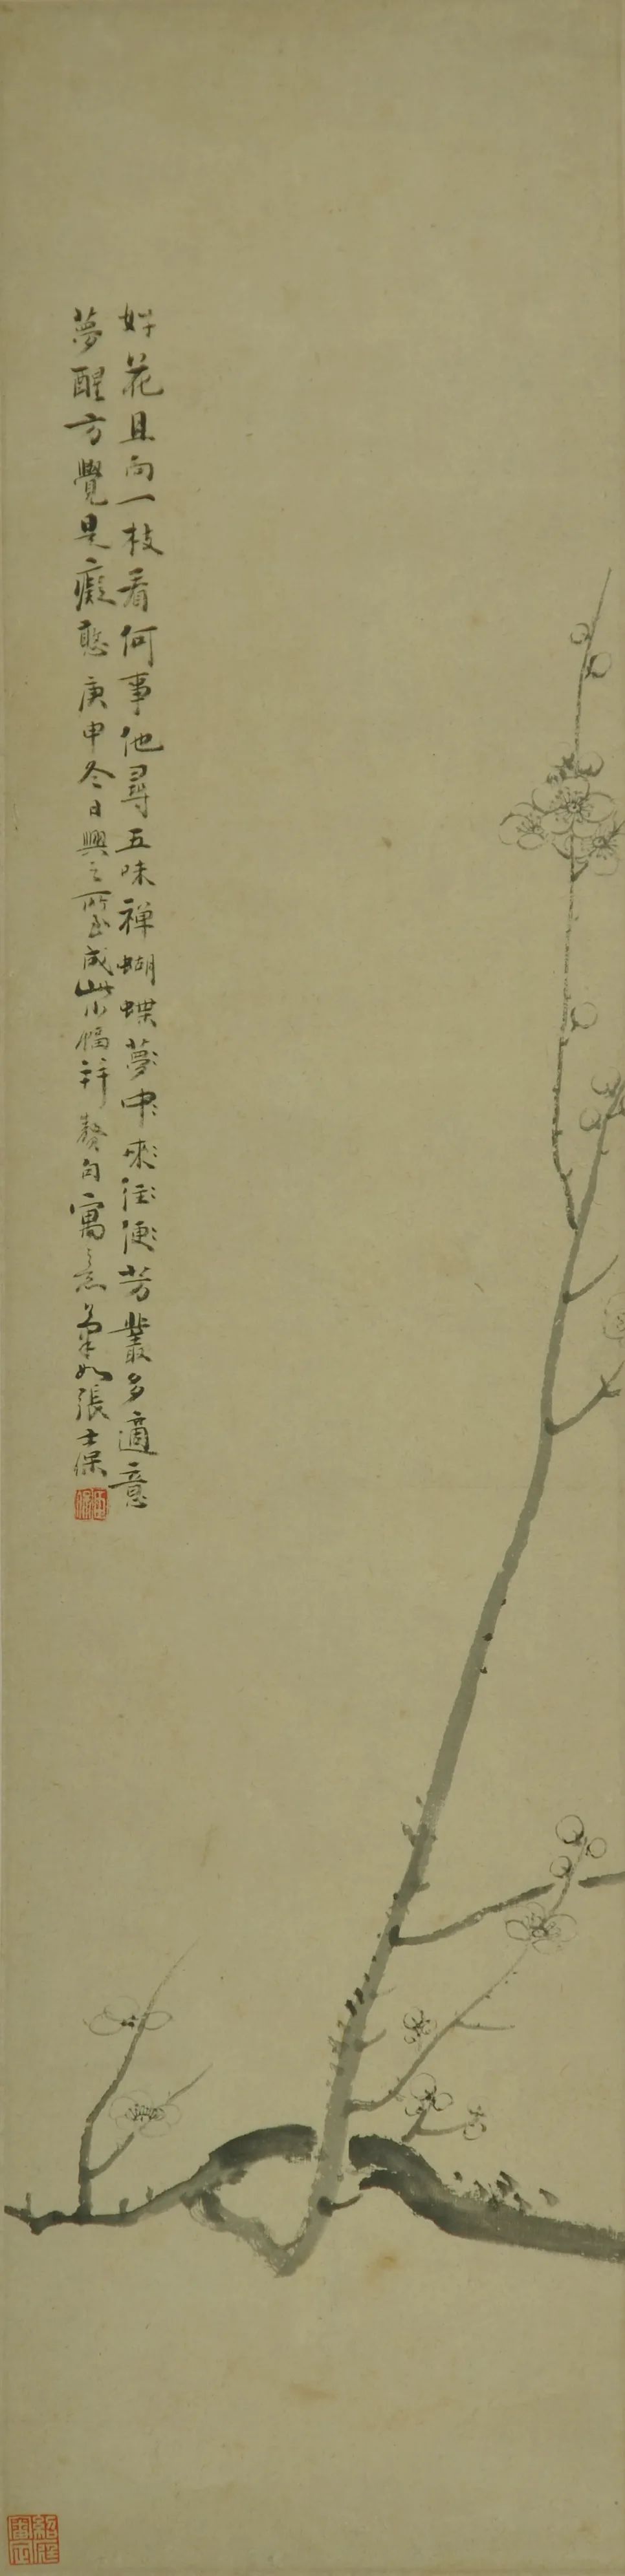 好花且向一枝看何事他尋五味禅蝴蝶夢中来往便芳叢多適意
夢醒方覺是癡憨庚申冬日興之所至成此小幅并贅句寓意菊如張士保